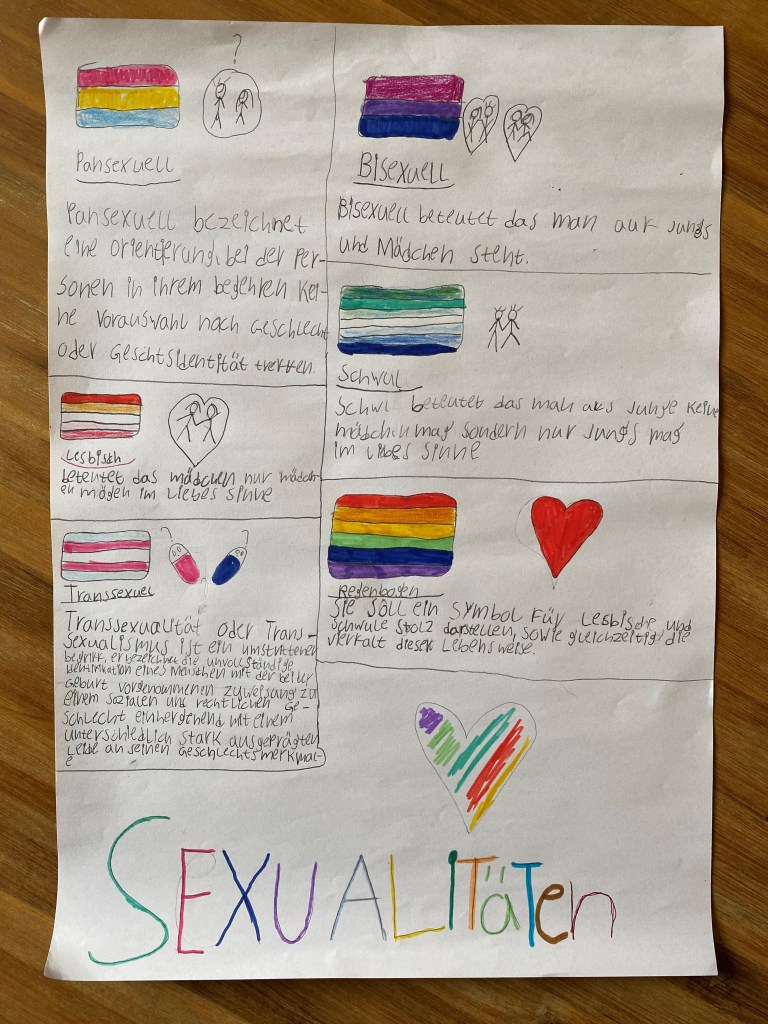 ?
Pansexuell
Pansexuell bezeichnet
eine orientierung, bei der Per-
sonen in ihrem begehren kei-
ne Vorauswahl nach Geschlecht
oder Geschtsidentität treffen.
Bisexuell
Bisexuell beteutet das man auf Jungs
und Mädchen steht.
Schwul
Schwul beteutet das man als Junge keine
mädchen mag sondern nur Jungs mag
im Liebes Sinne
Lesbisch
beteutet das mädchen nur mädch-
en mögen im Liebes Sinne
Regenbogen
Sie soll ein Symbol Für Lesbische und
Schwule Stolz darstellen, sowie gleichzeitig die
vielfalt dieser Lebensweise.
Transsexuel
Transsexualität oder Trans-
sexualismus ist ein umstrittener
begriff, er bezeichnet die unvollständige
identifikation eines Menschen mit der bei der
Geburt vorgenommenen zuweisung zu
einem sozialen und rechtlichen Ge-
schlecht einhergehend mit einem
unterschiedlich stark ausgeprägten
Leide an seinen Geschlechtsmerkmal-
e
SEXUALITäTen